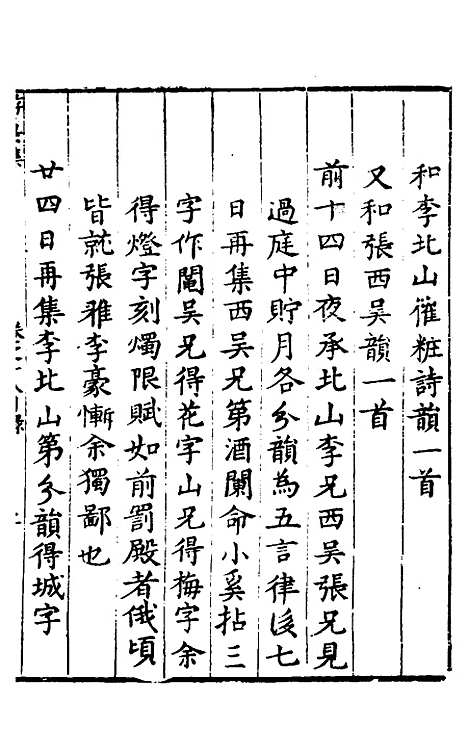 和李北山催粧詩韻一首
又和張西吳韻一首
前十四日夜承北山李兄西吳張兄見
過庭中貯月各分韻為五言律後七
日再集西吳兄第酒闌命小奚拈三
字作鬮吳兄得花字山兄得梅字余
得燈字刻燭限賦如前罰殿者俄頃
皆就張雅李豪慚余獨鄙也
廿四日再集李北山第分韻得城字